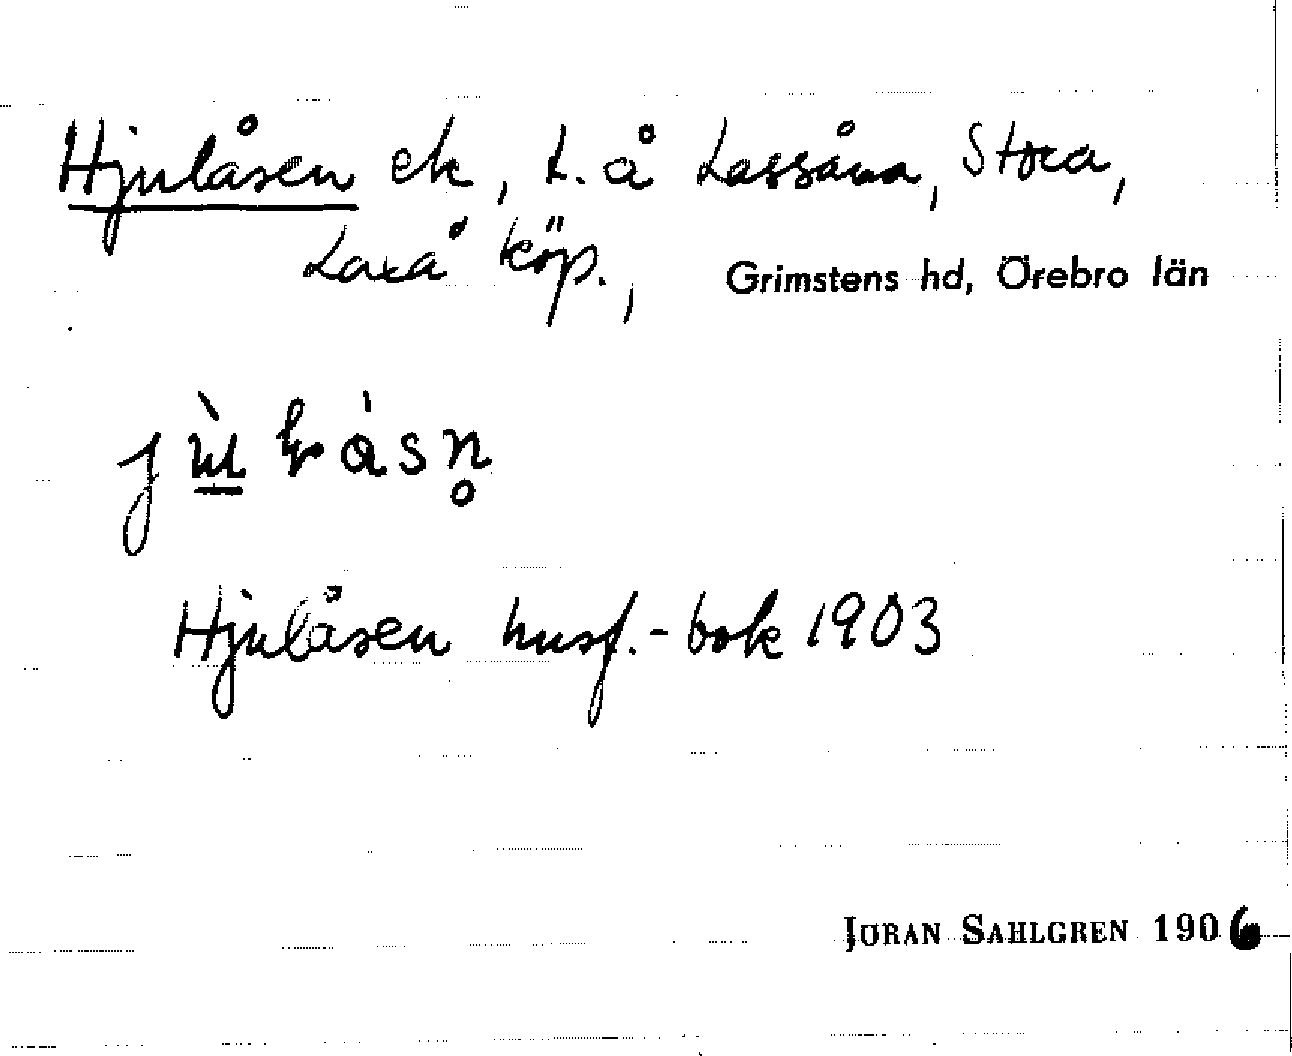 Hjulåsen ek, t. å Lassåna, Stora,
Laxå köp., Grimstens hd, Örebro län
Hjulåsen husf.-bok 1903
JÖRAN SAHLGREN 1906